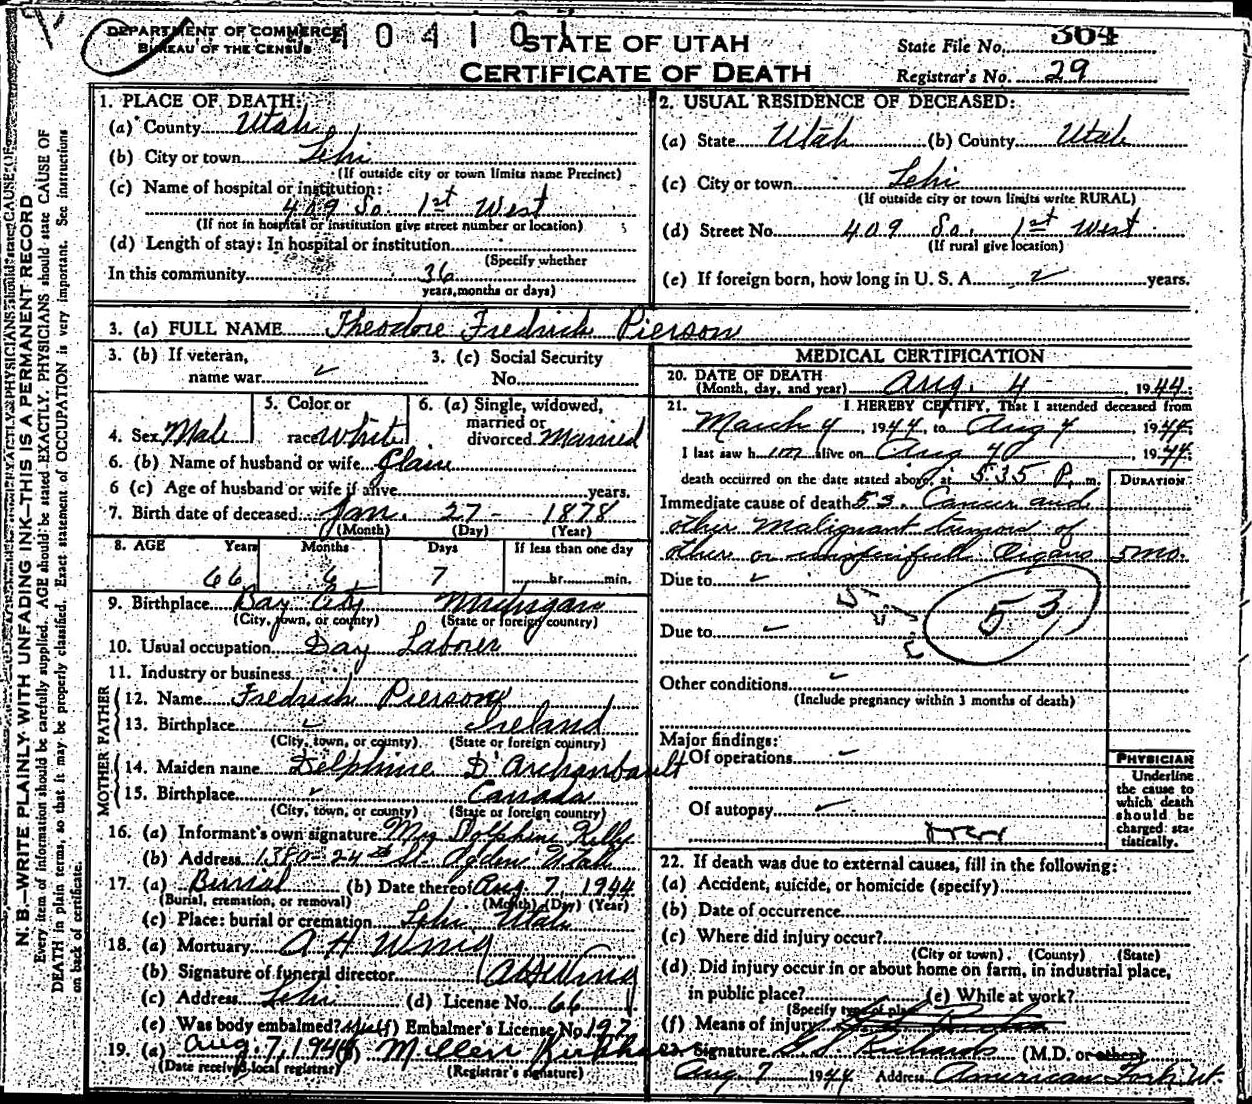 DEPARTMENT OF COMMERCE
BUREAU OF THE CENSUS
404101
STATE OF UTAH
CERTIFICATE OF DEATH
State File No. 364
Registrar's No. 29
N. B.—WRITE PLAINLY WITH UNFADING INK—THIS IS A PERMANENT RECORD
Every item of information should be carefully supplied. AGE should be stated EXACTLY. PHYSICIANS should state CAUSE OF
DEATH in plain terms, so that it may be properly classified. Exact statement of OCCUPATION is very important. See instructions
on back of certificate.
1. PLACE OF DEATH:
(a) County Utah
(b) City or town Lehi
(If outside city or town limits name Precinct)
(c) Name of hospital or institution:
409 So. 1st West
(If not in hospital or institution give street number or location)
(d) Length of stay: In hospital or institution
(Specify whether
In this community 36
years, months or days)
2. USUAL RESIDENCE OF DECEASED:
(a) State Utah (b) County Utah
(c) City or town Lehi
(If outside city or town limits write RURAL)
(d) Street No. 409 So. 1st West
(If rural give location)
(e) If foreign born, how long in U. S. A. years.
3. (a) FULL NAME Theodore Fredrick Pierson
3. (b) If veteran, name war
3. (c) Social Security No.
4. Sex Male
5. Color or race White
6. (a) Single, widowed, married or divorced Married
6. (b) Name of husband or wife
6 (c) Age of husband or wife if alive years.
7. Birth date of deceased Jan. 27 - 1878
(Month) (Day) (Year)
8. AGE Years Months Days If less than one day
66 6 7 hr. min.
9. Birthplace Bay City Michigan
(City, town, or county) (State or foreign country)
10. Usual occupation Day Laborer
11. Industry or business
FATHER
12. Name Fredrick Pierson
13. Birthplace Ireland
(City, town, or county) (State or foreign country)
MOTHER
14. Maiden name Delphine D'Archanbault
15. Birthplace Canada
(City, town, or county) (State or foreign country)
16. (a) Informant's own signature Mrs Dolphine Kelly
(b) Address 1380-24th St. Ogden Utah
17. (a) Burial (b) Date thereof Aug 7, 1944
(Burial, cremation, or removal) (Month) (Day) (Year)
(c) Place: burial or cremation Lehi Utah
18. (a) Mortuary A H Wing
(b) Signature of funeral director A H Wing
(c) Address Lehi (d) License No. 66
(e) Was body embalmed? yes (f) Embalmer's License No. 197
19. (a) Aug. 7, 1944 (b)
(Date received local registrar) (Registrar's signature)
MEDICAL CERTIFICATION
20. DATE OF DEATH
(Month, day, and year) Aug. 4 1944
21. I HEREBY CERTIFY, That I attended deceased from
March 4, 1944, to Aug 4, 1944
I last saw him alive on Aug 1944
death occurred on the date stated above, at 5:35 P. m.
DURATION
Immediate cause of death 53. Cancer and
other Malignant of
other or Organs 5 mo.
Due to
53
Due to
Other conditions
(Include pregnancy within 3 months of death)
Major findings:
Of operations
Of autopsy
PHYSICIAN
Underline
the cause to
which death
should be
charged sta-
tistically.
22. If death was due to external causes, fill in the following:
(a) Accident, suicide, or homicide (specify)
(b) Date of occurrence
(c) Where did injury occur?
(City or town) (County) (State)
(d) Did injury occur in or about home on farm, in industrial place,
in public place? (e) While at work?
(Specify type of place)
(f) Means of injury
23. Signature G S Richards (M.D. or other)
Aug 7 1944 Address American Fork Ut.